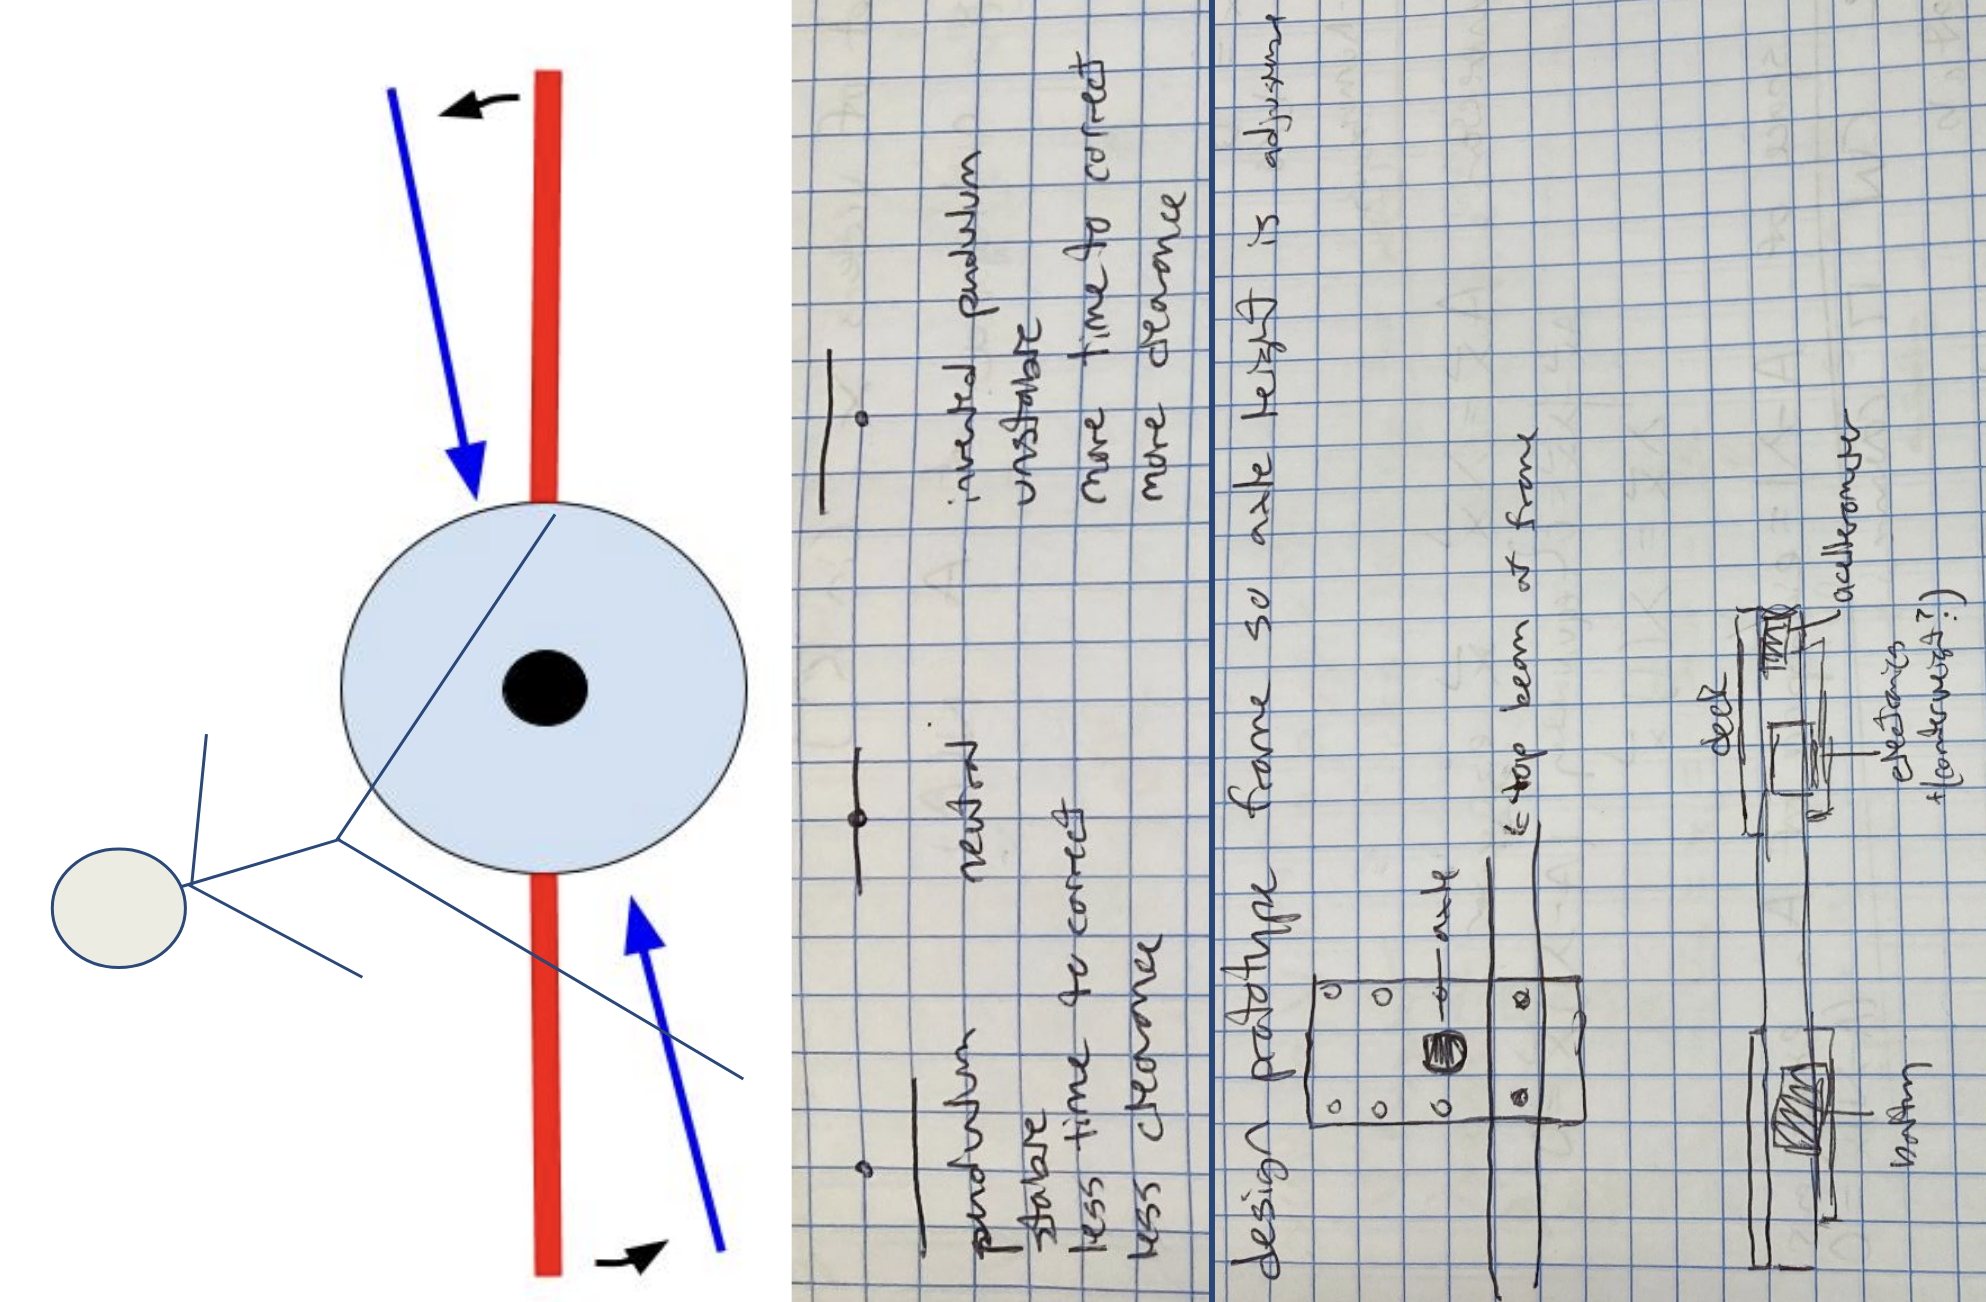 pendulum
stable
less time to correct
less clearance
neutral
inverted pendulum
unstable
more time to correct
more clearance
design prototype frame so axle height is
axle
top beam of frame
deck
electronics
+(counterweight?)
battery